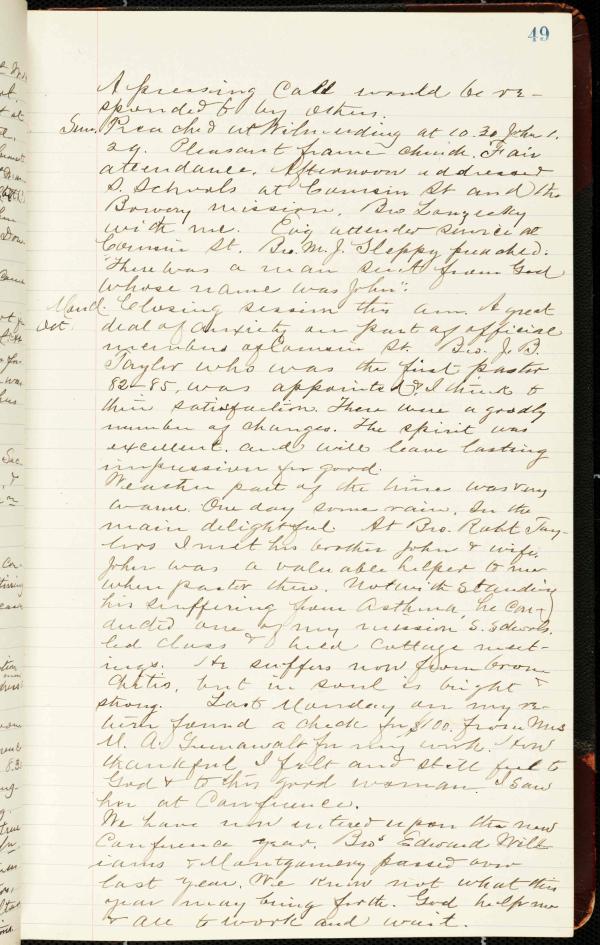 49
A pressing Call would be re-
sponded to by others.
Sun. Preached at Wilmerding at 10.30 John 1.
29. Pleasant frame church. Fair
attendance. Afternoon addressed
S. Schools at Comsin St and the
Bowery mission. Bro Langecky
with me. Evg attended service at
Comsin St. Bro. M. J. Sleppy preached:
"There was a man sent from God
whose name was John".
Mond. Closing session this am. A great
Oct. deal of anxiety on part of official
members of Comsin St. Bro. J. B.
Taylor who was the first pastor
82-85, was appointed & I think to
their satisfaction. There were a goodly
number of changes. The spirit was
excellent. and will leave lasting
impression for good.
Weather part of the time was very
warm. One day some rain. In the
main delightful At Bro. Robt Tay-
lors I met his brother John & wife.
John was a valuable helper to me
when pastor there. Notwithstanding
his suffering from Asthma he con-
ducted one of my mission S. Schools.
led class & held Cottage meet-
ings. He suffers now from bron-
chitis, but in soul is bright &
strong. Last Monday on my re-
turn found a check for $100. from Mrs
M. A. Gumawalt for my work. How
thankful I felt and still feel to
God & to this good woman. I saw
her at Conference.
We have now entered upon the new
Conference year. Bros Edward Will-
iams & Montgomery passed over
last year. We know not what this
year may bring forth. God help me
& all to work and wait.